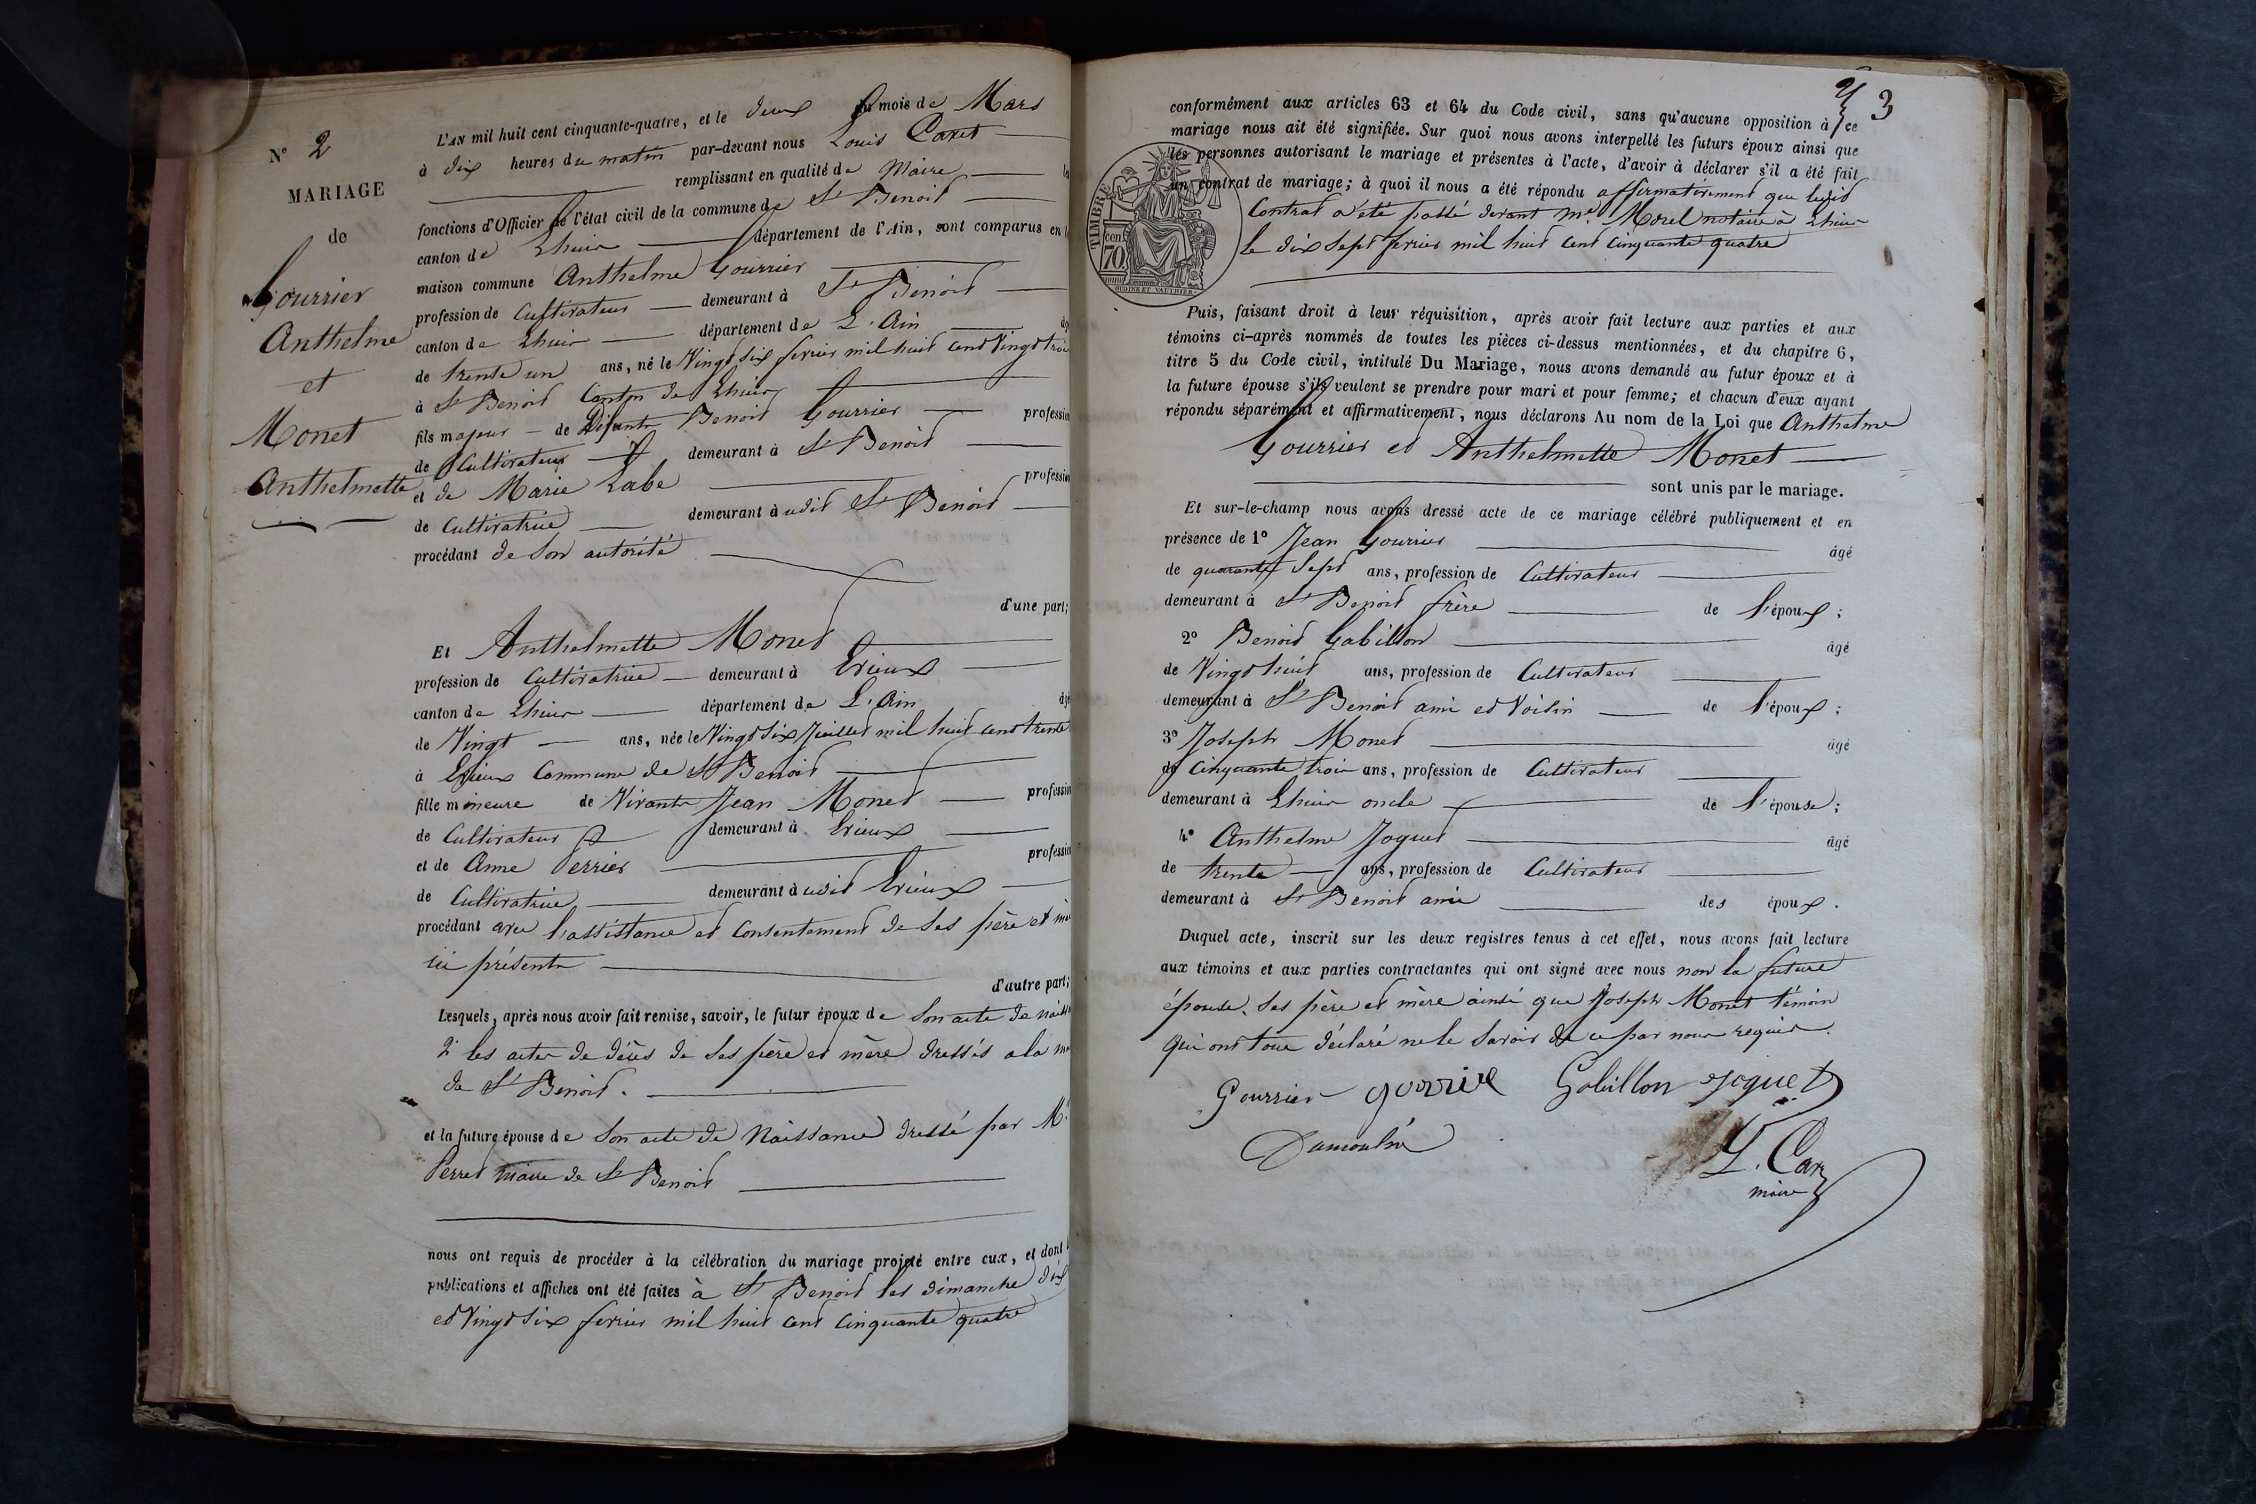 N° 2
MARIAGE
de
Gourrier
Anthelme
et
Monet
Anthelmette
L'AN mil huit cent cinquante-quatre, et le deux du mois de Mars
à dix heures du matin par-devant nous Louis Carret
remplissant en qualité de Maire
fonctions d'Officier de l'état civil de la commune de St Benoit
canton de Lhuis département de l'Ain, sont comparus en
maison commune Anthelme Gourrier
profession de Cultivateur demeurant à St Benoit
canton de Lhuis département de L'Ain
de trente un ans, né le Vingt six fevrier mil huit cent Vingt trois
à St Benoit Canton de Lhuis
fils majeur de Défunts Benoit Gourrier profession
de Cultivateur demeurant à St Benoit
et de Marie Labe profession
de Cultivatrice demeurant à udit St Benoit
procédant de son autorité
d'une part;
Et Anthelmette Monet
profession de Cultivatrice demeurant à Evieux
canton de Lhuis département de L'Ain
de Vingt ans, née le Vingt six Juillet mil huit cent trente
à Evieux Commune de St Benoit
fille mineure de Vivants Jean Monet profession
de Cultivateur demeurant à Evieux
et de Anne Perrier profession
de Cultivatrice demeurant à udit Evieux
procédant avec l'assistance et Consentement de ses père et
ici présents
d'autre part;
Lesquels, après nous avoir fait remise, savoir, le futur époux de son acte de
2° les actes de décès de ses père et mère dressés a la
de St Benoit.
et la future épouse de son acte de Naissance dressé par Mr
Perret maire de St Benoit
nous ont requis de procéder à la célébration du mariage projeté entre eux, et dont
publications et affiches ont été faites à St Benoit les dimanche dix
et Vingt six fevrier mil huit cent cinquante quatre
3
conformément aux articles 63 et 64 du Code civil, sans qu'aucune opposition à ce
mariage nous ait été signifiée. Sur quoi nous avons interpellé les futurs époux ainsi que
les personnes autorisant le mariage et présentes à l'acte, d'avoir à déclarer s'il a été fait
un contrat de mariage; à quoi il nous a été répondu affirmativement que ledit
Contrat a été passé devant Me Morel notaire à Lhuis
le dix sept fevrier mil huit cent cinquante quatre
TIMBRE
70
Puis, faisant droit à leur réquisition, après avoir fait lecture aux parties et aux
témoins ci-après nommés de toutes les pièces ci-dessus mentionnées, et du chapitre 6,
titre 5 du Code civil, intitulé Du Mariage, nous avons demandé au futur époux et à
la future épouse s'ils veulent se prendre pour mari et pour femme; et chacun d'eux ayant
répondu séparément et affirmativement, nous déclarons Au nom de la Loi que Anthelme
Gourrier et Anthelmette Monet
sont unis par le mariage.
Et sur-le-champ nous avons dressé acte de ce mariage célébré publiquement et en
présence de 1° Jean Gourrier âgé
de quarante sept ans, profession de Cultivateur
demeurant à St Benoit frère de l'époux;
2° Benoit Gabillon âgé
de Vingt huit ans, profession de Cultivateur
demeurant à St Benoit ami et Voisin de l'époux;
3° Joseph Monet âgé
de cinquante trois ans, profession de Cultivateur
demeurant à Lhuis oncle de l'épouse;
4° Anthelme Joguet âgé
de trente ans, profession de Cultivateur
demeurant à St Benoit ami des époux.
Duquel acte, inscrit sur les deux registres tenus à cet effet, nous avons fait lecture
aux témoins et aux parties contractantes qui ont signé avec nous non la future
épouse, ses père et mère ainsi que Joseph Monet témoin
qui ont tous déclaré ne le savoir de ce par nous requis.
Gourrier gourrier Gabillon Joguet
L. Car
maire